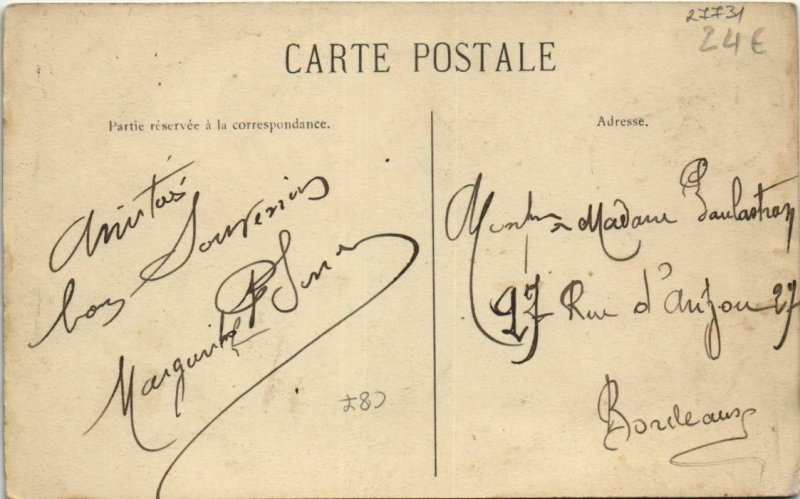 27731
24€
CARTE POSTALE
Partie réservée à la correspondance.
Amitiés
bons Souvenirs
Marguerite
780
Adresse.
Madame
27 Rue d'Anjou 27
Bordeaux